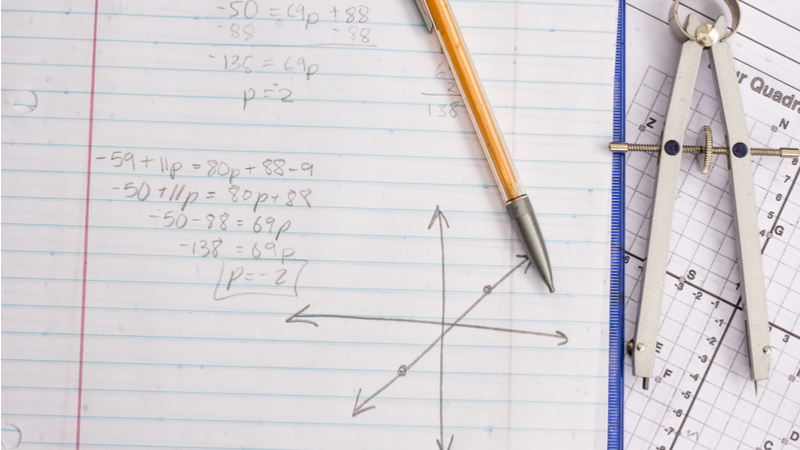 -50 = 69p + 88
-88 -88
-138 = 69p
p=-2
138
-59+11p = 80p+88-9
-50+11p = 80p+88
-50-88 = 69p
-138 = 69p
p=-2
ur Quadra
Z
N
8
7
5
4
G
S
-3
-2
-1
-1
3
E
F
-4
-5
-6
-7
C
D